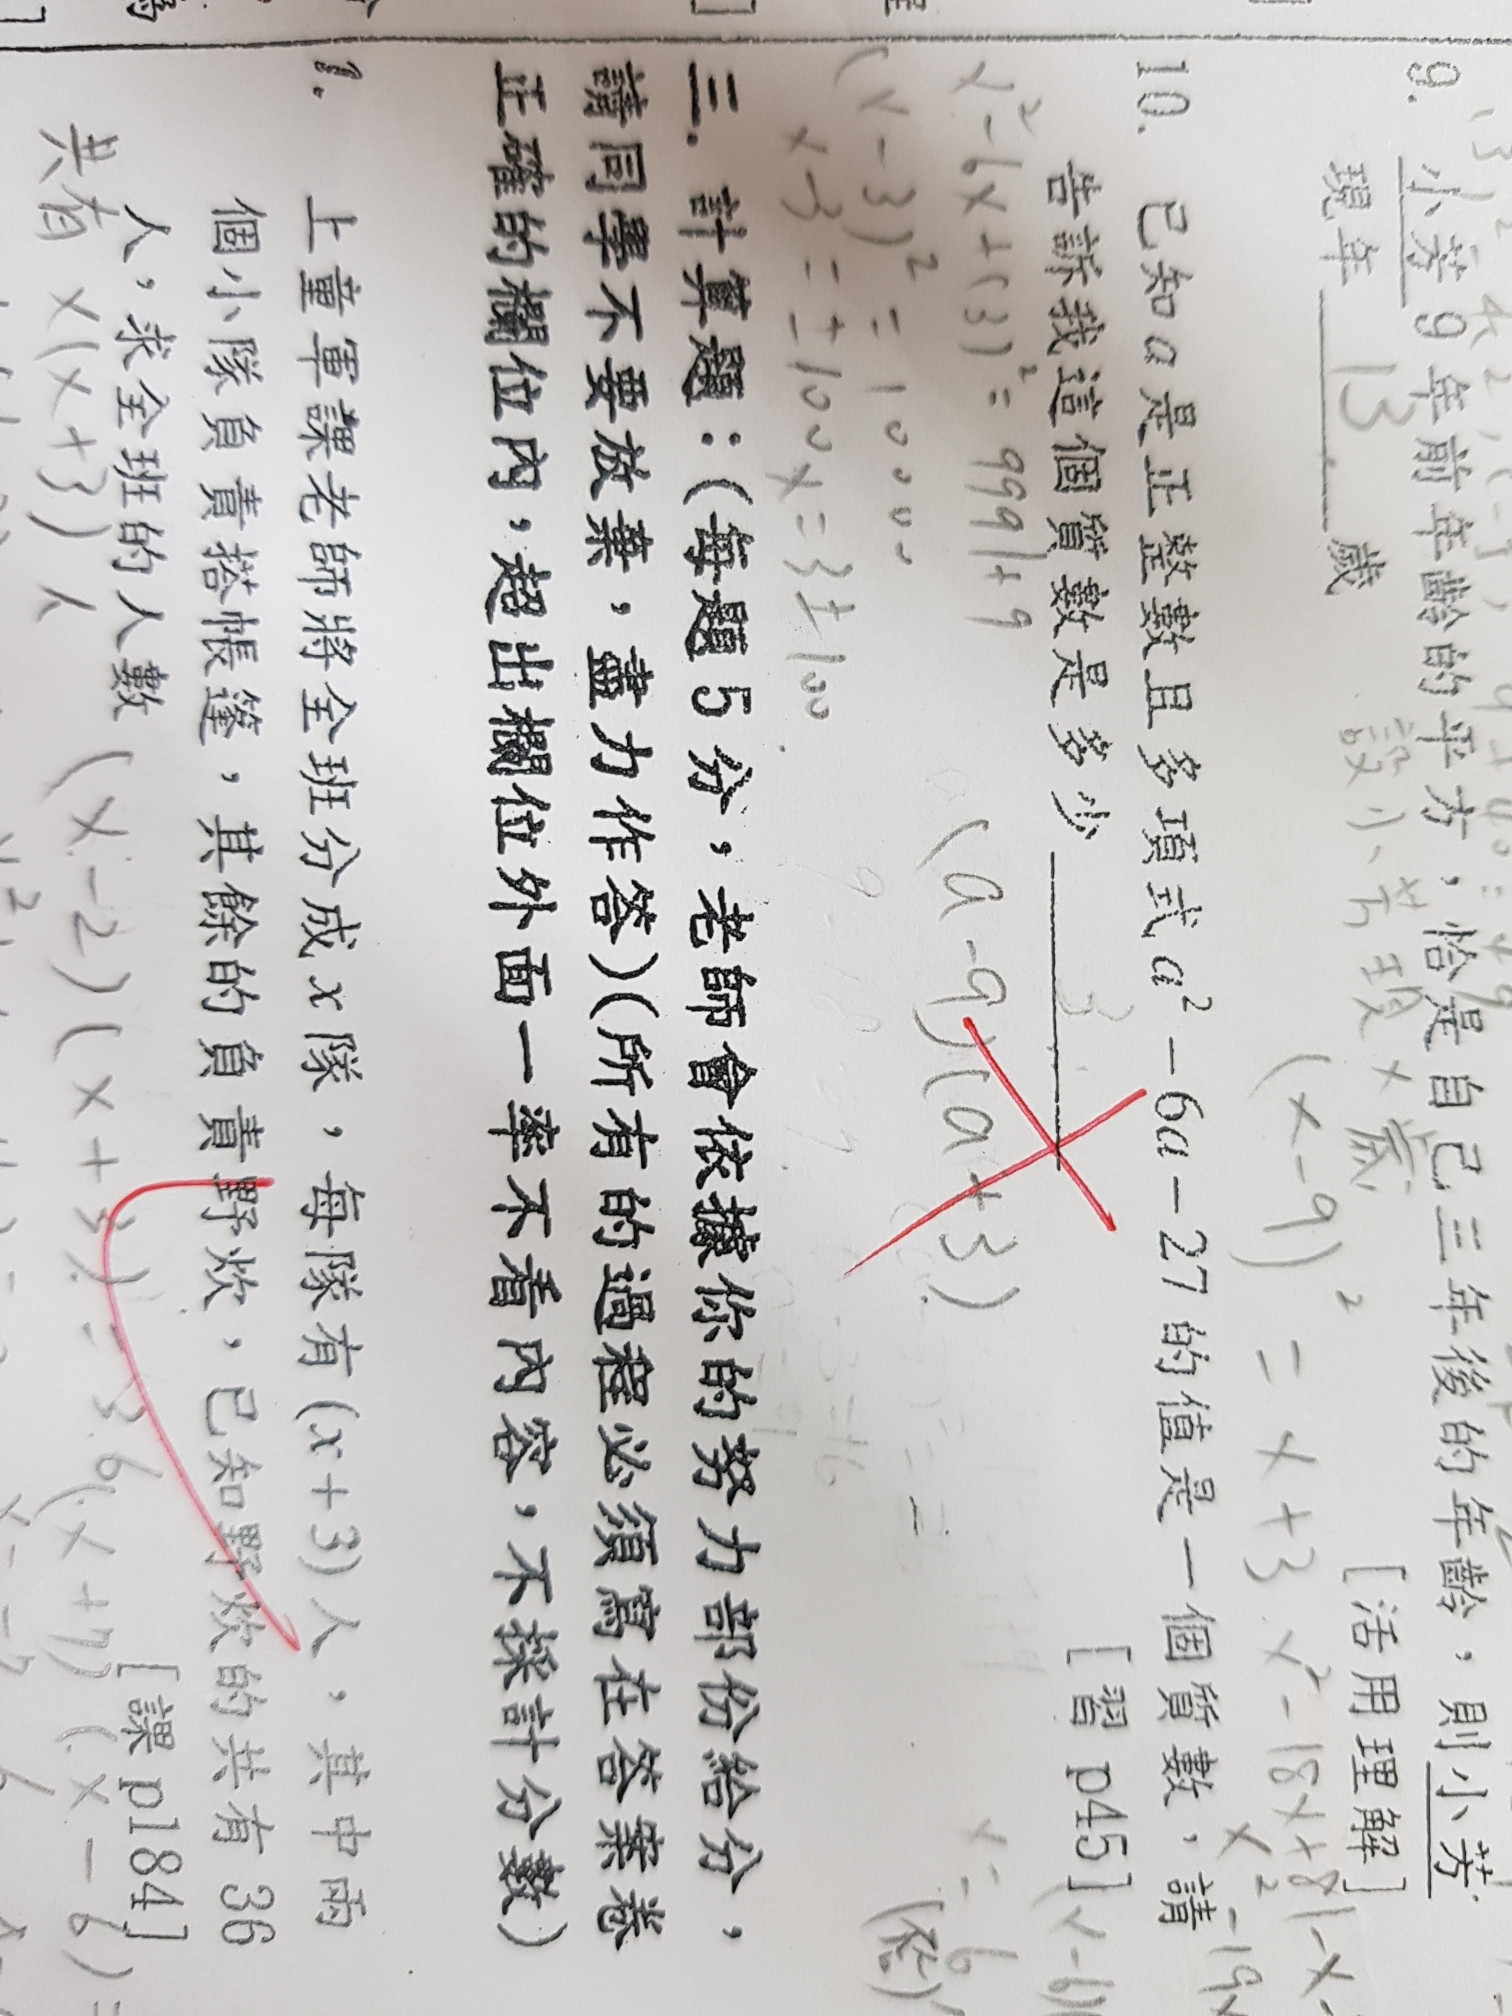 9. 小芳9年前年齡的平方,恰是自己三年後的年齡,則小芳
現年 13 歲 [活用理解]
設小芳現x歲
(x-9)² = x+3
10. 已知a是正整數且多項式a²-6a-27的值是一個質數,請
告訴我這個質數是多少 3 [習 p45]
x²-6x+(3)²=9991+9
(x-3)²=10000
x-3=±100 x=3±100
(a-9)(a+3)
三. 計算題:(每題5分,老師會依據你的努力部份給分,
請同學不要放棄,盡力作答)(所有的過程必須寫在答案卷
正確的欄位內,超出欄位外面一率不看內容,不採計分數)
1. 上童軍課老師將全班分成x隊,每隊有(x+3)人,其中兩
個小隊負責搭帳篷,其餘的負責野炊,已知野炊的共有36
人,求全班的人數 [課 p184]
共有 x(x+3)人
(x-2)(x+3)=36
(x+7)(x-6)=